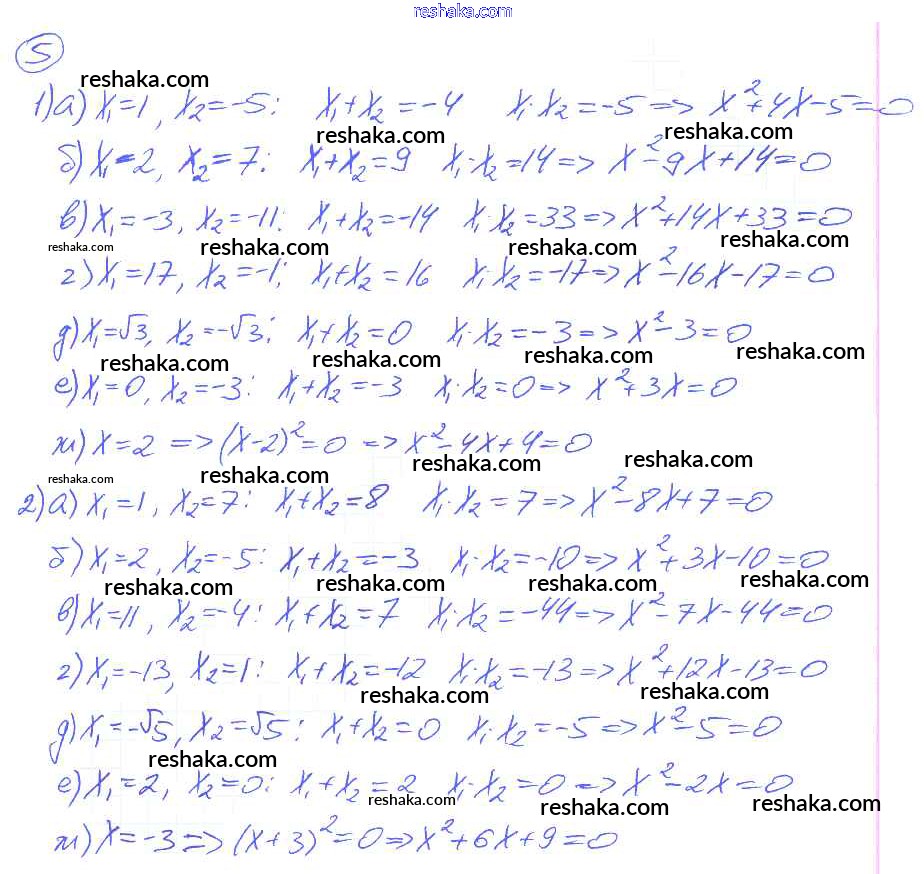 reshaka.com
5
reshaka.com
1) а) x₁=1, x₂=-5: x₁+x₂=-4 x₁·x₂=-5 => x²+4x-5=0
reshaka.com reshaka.com
б) x₁=2, x₂=7: x₁+x₂=9 x₁·x₂=14 => x²-9x+14=0
в) x₁=-3, x₂=-11: x₁+x₂=-14 x₁·x₂=33 => x²+14x+33=0
reshaka.com reshaka.com reshaka.com reshaka.com
г) x₁=17, x₂=-1; x₁+x₂=16 x₁·x₂=-17 => x²-16x-17=0
д) x₁=√3, x₂=-√3; x₁+x₂=0 x₁·x₂=-3 => x²-3=0
reshaka.com reshaka.com reshaka.com reshaka.com
е) x₁=0, x₂=-3: x₁+x₂=-3 x₁·x₂=0 => x²+3x=0
ж) x=2 => (x-2)²=0 => x²-4x+4=0
reshaka.com reshaka.com reshaka.com reshaka.com
2) а) x₁=1, x₂=7: x₁+x₂=8 x₁·x₂=7 => x²-8x+7=0
б) x₁=2, x₂=-5: x₁+x₂=-3 x₁·x₂=-10 => x²+3x-10=0
reshaka.com reshaka.com reshaka.com reshaka.com
в) x₁=11, x₂=-4: x₁+x₂=7 x₁·x₂=-44 => x²-7x-44=0
г) x₁=-13, x₂=1: x₁+x₂=-12 x₁·x₂=-13 => x²+12x-13=0
reshaka.com reshaka.com
д) x₁=-√5, x₂=√5: x₁+x₂=0 x₁·x₂=-5 => x²-5=0
reshaka.com
е) x₁=2, x₂=0: x₁+x₂=2 x₁·x₂=0 => x²-2x=0
reshaka.com reshaka.com reshaka.com
ж) x=-3 => (x+3)²=0 => x²+6x+9=0